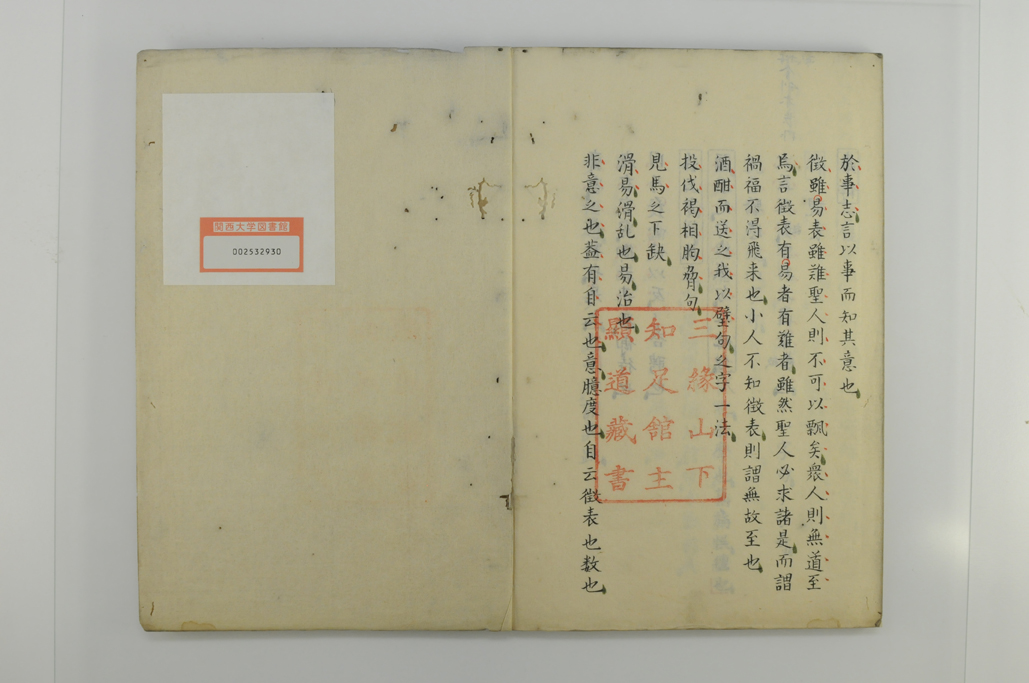 於事志言以事而知其意也
徴雖易表雖難聖人則不可以飄矣衆人則無道至
焉言徴表有易者有難者雖然聖人必求諸是而謂
禍福不得飛来也小人不知徴表則謂無故至也
酒酣而送之我以璧句之字一法
投伐褐相胊脅句
見馬之下缺
滑易滑乱也易治也
非意之也蓋有自云也意臆度也自云徴表也数也
三縁山下
知足館主
顯道藏書
関西大学図書館
002532930